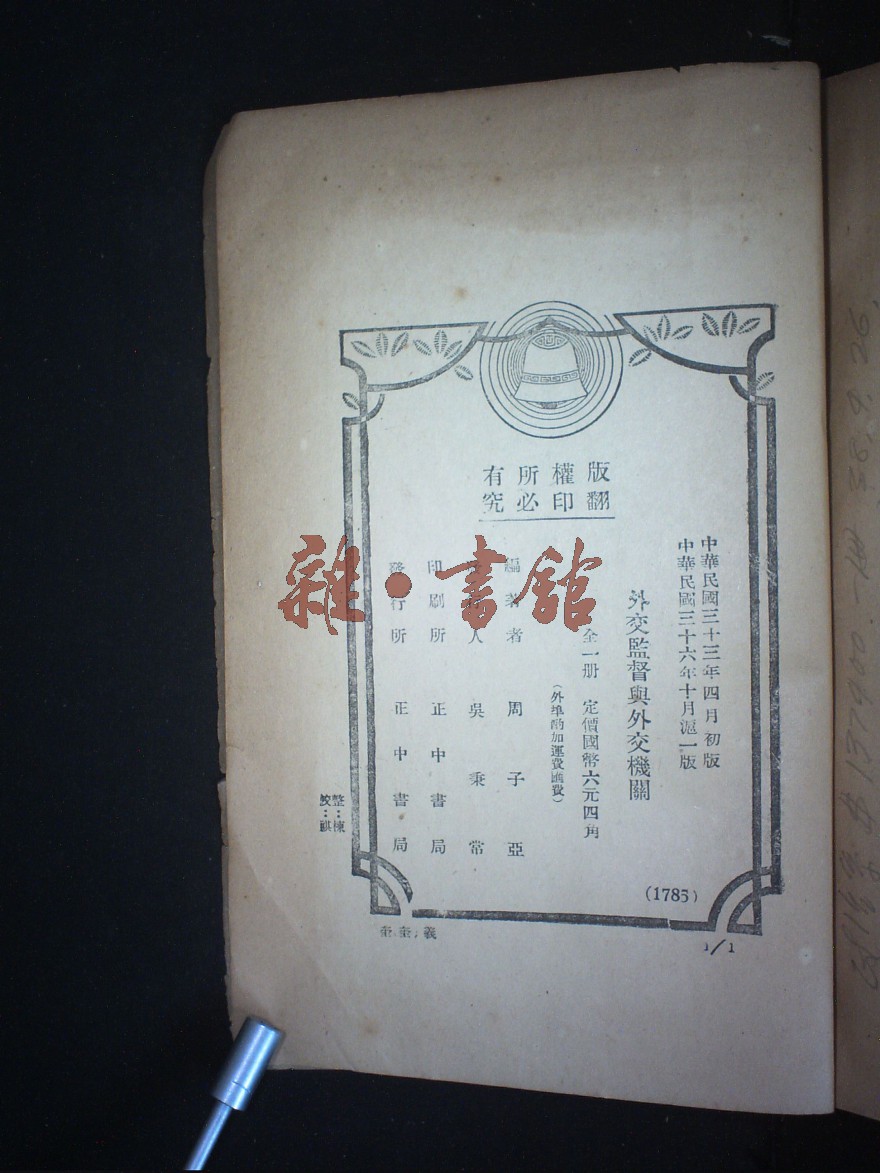 版權所有
翻印必究
中華民國三十三年四月初版
中華民國三十六年十月滬一版
外交監督與外交機關
全一册 定價國幣六元四角
(外埠酌加運費匯費)
編著者 周子亞
人 吳秉常
印刷所 正中書局
發行所 正中書局
(1785)
整:棟
校:祺
1/1
雜·書舘